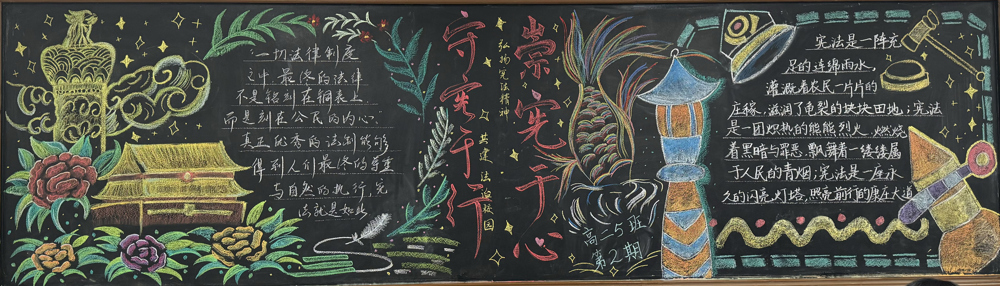 一切法律制度
之中最终的法律
不是铭刻在铜表上
而是刻在公民的内心.
真正优秀的法制能够
得到人们最终的尊重
与自然的执行,宪
法就是如此
守宪于行
弘扬宪法精神
共建法治校园
崇宪于心
高二5班
第2期
宪法是一阵充
足的连绵雨水,
灌溉着农民一片片的
庄稼,滋润了龟裂的块块田地;宪法
是一团炽热的熊熊烈火,燃烧
着黑暗与罪恶,飘舞着一缕缕属
于人民的青烟;宪法是一座永
久的闪亮灯塔,照亮前行的康庄大道